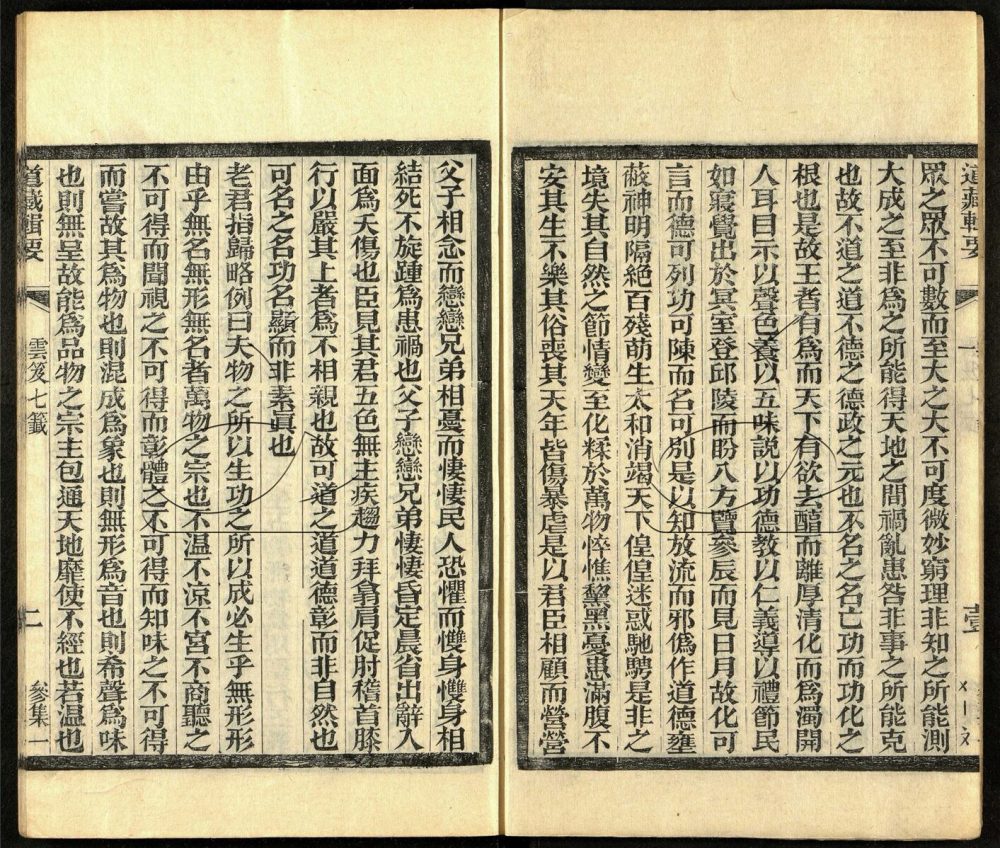 道藏輯要
一
眾之眾不可數而至大之大不可度微妙窮理非知之所能測
大成之至非為之所能得天地之間禍亂患咎非事之所能克
也故不道之道不德之德政之元也不名之名亡功而功化之
根也是故王者有為而天下有欲去醇而離厚清化而為濁開
人耳目示以聲色養以五味說以功德教以仁義導以禮節民
如寢覺出於冥室登邱陵而盼八方覽參辰而見日月故化可
言而德可列功可陳而名可別是以知放流而邪偽作道德壅
蔽神明隔絕百殘萌生太和消竭天下偟偟迷惑馳騁是非之
境失其自然之節情變至化糅於萬物悴憔黧黑憂患滿腹不
安其生不樂其俗喪其天年皆傷暴虐是以君臣相顧而營營
父子相念而戀戀兄弟相憂而悽悽民人恐懼而㦬身㦬身相
結死不旋踵為患禍也父子戀戀兄弟悽悽昏定晨省出辭入
面為夭傷也臣見其君五色無主疾趨力拜翕肩促肘稽首膝
行以嚴其上者為不相親也故可道之道道德彰而非自然也
可名之名功名顯而非素眞也
老君指歸略例曰夫物之所以生功之所以成必生乎無形形
由乎無名無形無名者萬物之宗也不温不涼不宮不商聽之
不可得而聞視之不可得而彰體之不可得而知味之不可得
而嘗故其為物也則混成為象也則無形為音也則希聲為味
也則無呈故能為品物之宗主包通天地靡使不經也若温也
道藏輯要
雲笈七籤
二
參集一